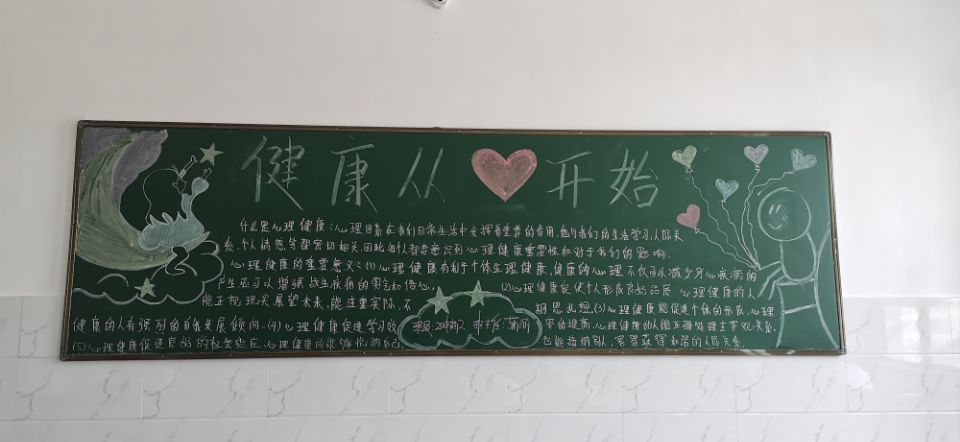 健康从 开始
什么是心理健康:心理因素在我们日常生活中会挥着重要的作用,它与我们的生活学习、人际关
系、个人情感等都密切相关,因此每个人都要意识到心理健康重要性和对于我们的影响.
心理健康的重要意义:(1)心理健康有利于个体生理健康,健康的心理不仅可以减少身心疾病的
产生还可以增强战生疾病的勇气和信心. (2)心理健康能使个人形成良好品质 心理健康的人
能正视现实展望未来,能注重实际,不 胡思乱想.(3)心理健康能促进个体的形成.心理
健康的人有强烈的自我发展倾向.(4)心理健康促进学习效 率的提高,心理健康的人能正确处理主客观关系.
(5)心理健康促进良好的社会适应.心理健康的 能 自己 也能接纳别人,容易获得和谐的人际关系.